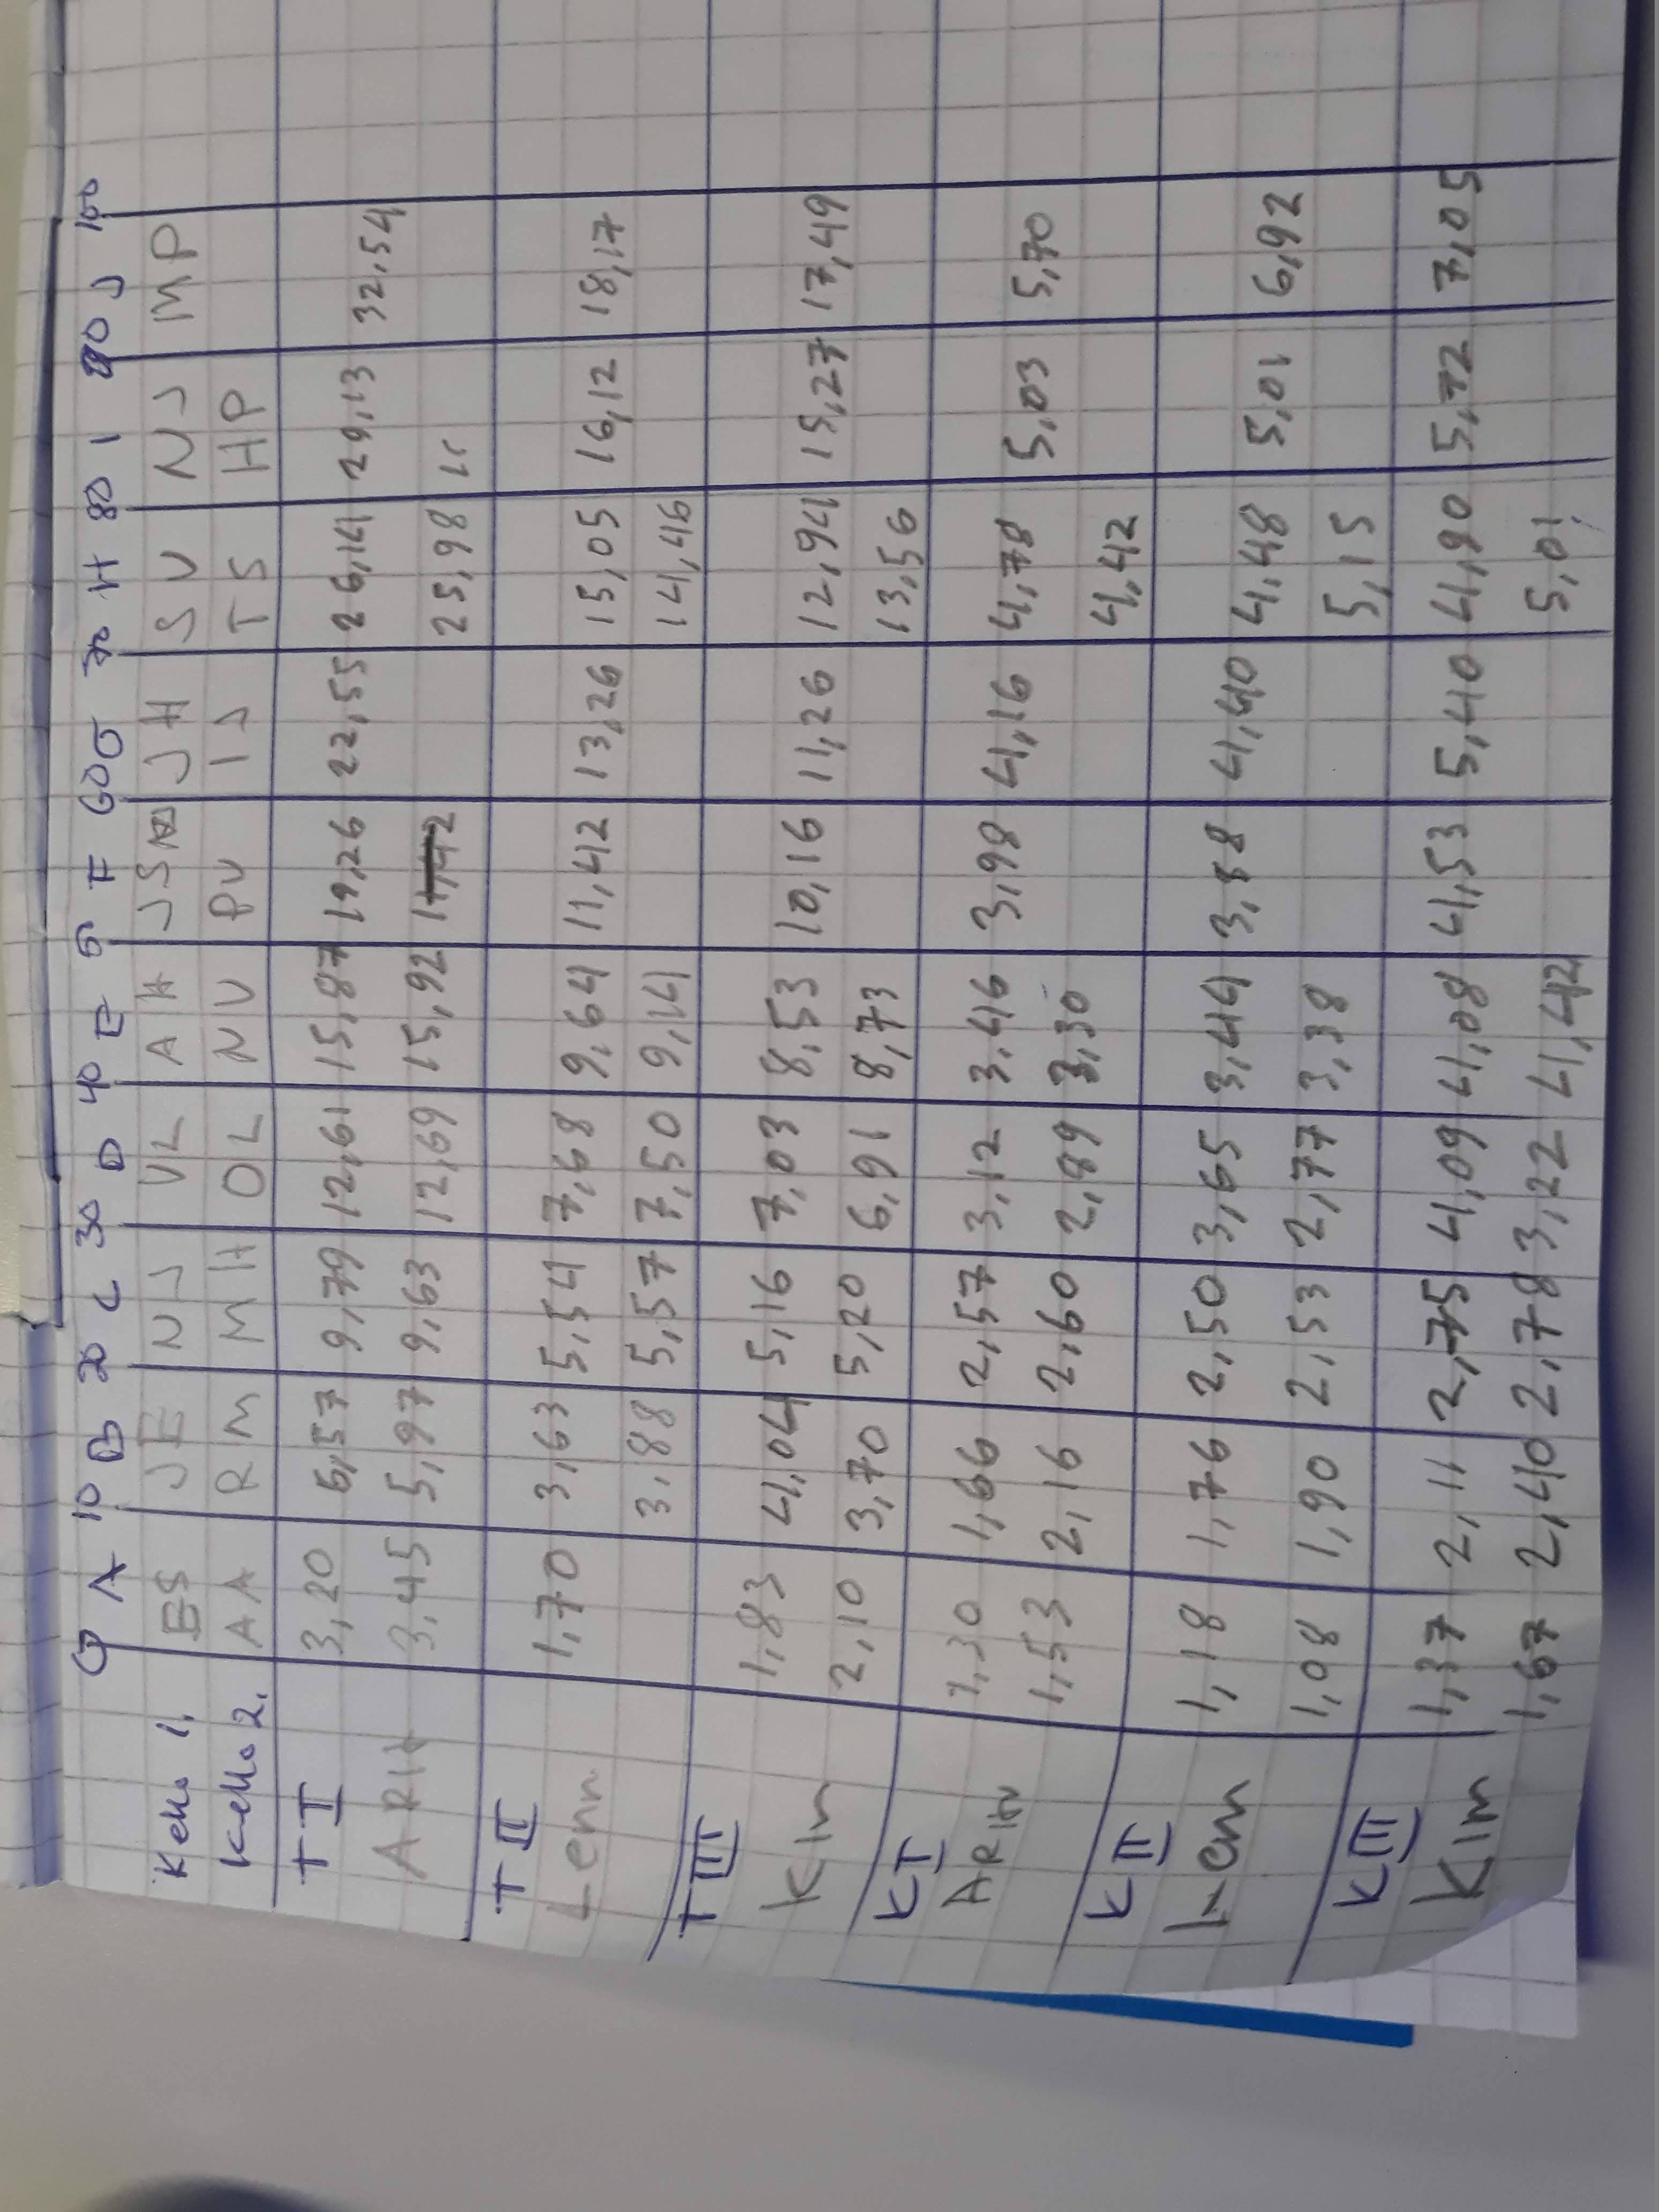 0 A 10 B 20 C 30 D 40 E 5 F 60 G 70 H 80 I 90 J 100
Kello 1. ES JE NJ VL AH JS JH SV NJ MP
Kello 2. AA RM MH OL NV PV IJ TS HP
T I 3,20 6,57 9,79 12,61 15,87 19,26 22,55 26,14 29,13 32,54
ARH 3,45 5,97 9,63 12,69 15,92 25,98
T II
Lenn 1,70 3,63 5,54 7,68 9,64 11,42 13,26 15,05 16,12 18,17
3,88 5,57 7,50 9,14 14,46
T III
Kim 1,83 4,04 5,16 7,03 8,53 10,16 11,26 12,94 15,27 17,49
2,10 3,70 5,20 6,91 8,73 13,56
K I
1,30 1,66 2,57 3,12 3,46 3,98 4,16 4,78 5,03 5,70
1,53 2,16 2,60 2,89 3,30 4,42
K II
Lenn 1,18 1,76 2,50 3,65 3,44 3,88 4,40 4,48 5,01 6,92
1,98 1,90 2,53 2,77 3,38 5,15
K III
Kim 1,37 2,11 2,75 4,09 4,08 4,53 5,40 4,90 5,72 7,05
1,67 2,40 2,78 3,22 4,42 5,01